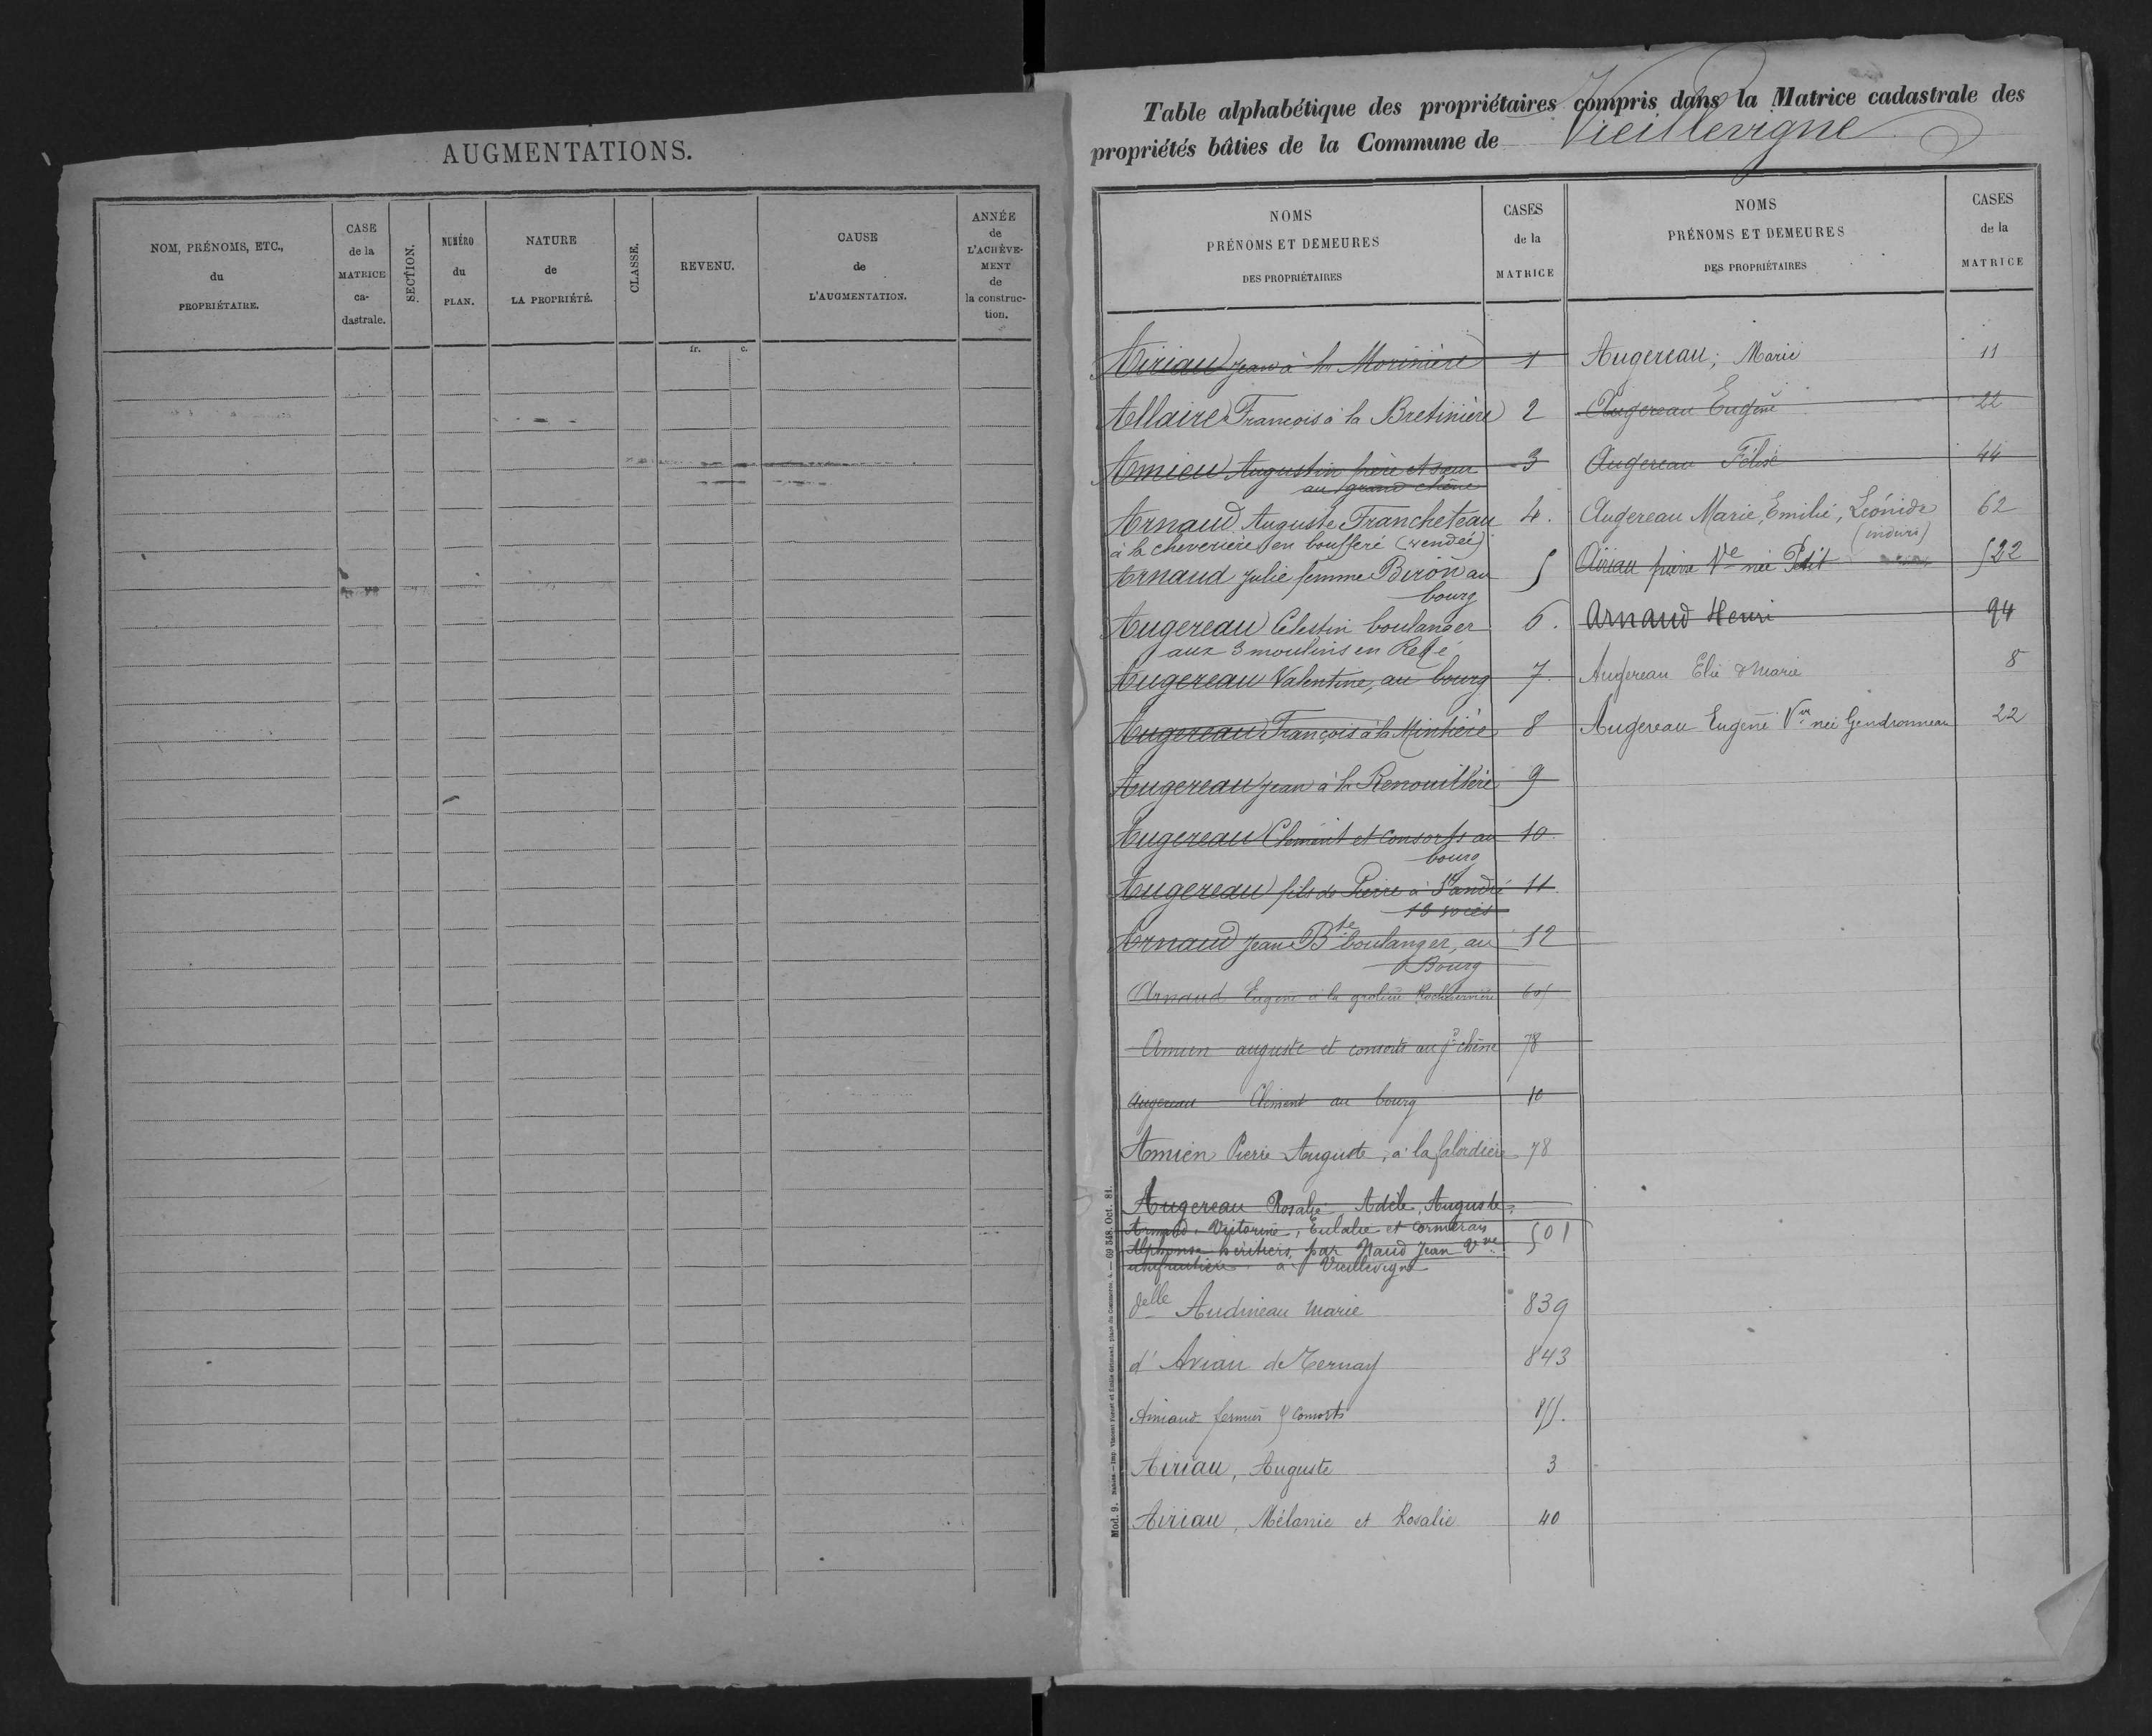 AUGMENTATIONS.
NOM, PRÉNOMS, ETC.,
du
PROPRIÉTAIRE.
CASE
de la
MATRICE
ca-
dastrale.
SECTION.
NUMÉRO
du
PLAN.
NATURE
de
LA PROPRIÉTÉ.
CLASSE.
REVENU.
fr. c.
CAUSE
de
L'AUGMENTATION.
ANNÉE
de
L'ACHÈVE-
MENT
de
la construc-
tion.
Table alphabétique des propriétaires compris dans la Matrice cadastrale des
propriétés bâties de la Commune de Vieillevigne
NOMS
PRÉNOMS ET DEMEURES
DES PROPRIÉTAIRES
CASES
de la
MATRICE
Airiau Jean à la Morinière 1
Allaire François à la Bretinière 2
Amieu Augustin frère et sœur 3
au grand chêne
Arnaud Auguste Francheteau 4.
à la cheverière en boufferé (vendée)
Arnaud Julie femme Biron au 5
bourg
Augereau Célestin boulanger 6.
aux 3 moulins en Rezé
Augereau Valentine, au bourg 7.
Augereau François à la Mintière 8
Augereau Jean à la Renouillère 9
Augereau Clément et consorts au 10
bourg
Augereau fils de Pierre à St andré 11
13 voies
Arnaud Jean Bte boulanger, au 12
Bourg
Arnaud Eugène à la 605
Amien auguste et consorts au gd chêne 78
Augereau Clément au bourg 10
Amien Pierre Auguste, à la 78
Augereau Rosalie, Adèle, Auguste,
Armand, Victorine, Eulalie et Cormerais
Alphonse héritiers par Naud Jean Vve 501
usufruitière à Vieillevigne
Delle Audineau Marie 839
d'Aviau de Ternay 843
consorts 855.
Airiau, Auguste 3
Airiau, Mélanie et Rosalie 40
Mod. 9. Nantes. — Imp. Vincent Forest et Émile Grimaud, place du Commerce, 4. — 69 548. Oct. 81.
NOMS
PRÉNOMS ET DEMEURES
DES PROPRIÉTAIRES
CASES
de la
MATRICE
Augereau, Marie 11
Augereau Eugène 22
Augereau Félix 44
Augereau Marie, Emilie, Léonide 62
(indivis)
Airiau pierre Ve née Petit 522
Arnaud Henri 94
Augereau Elie & Marie 8
Augereau Eugène Vve née Gendronneau 22